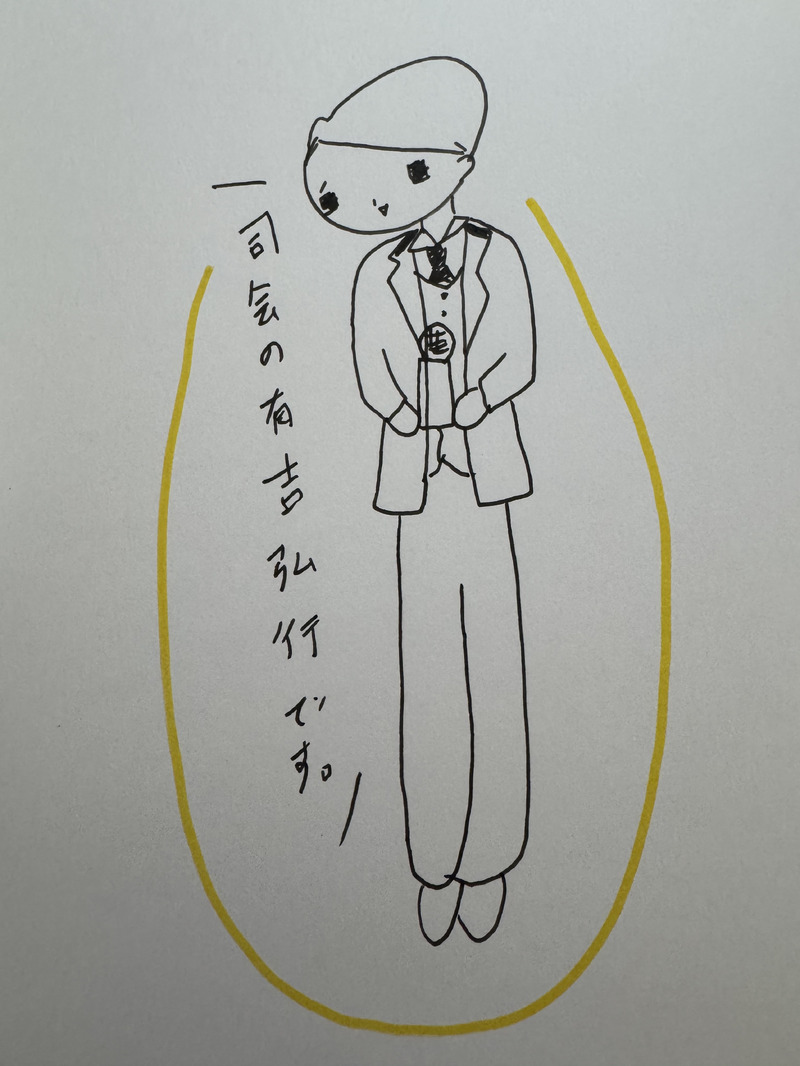 司会の有吉弘行です。